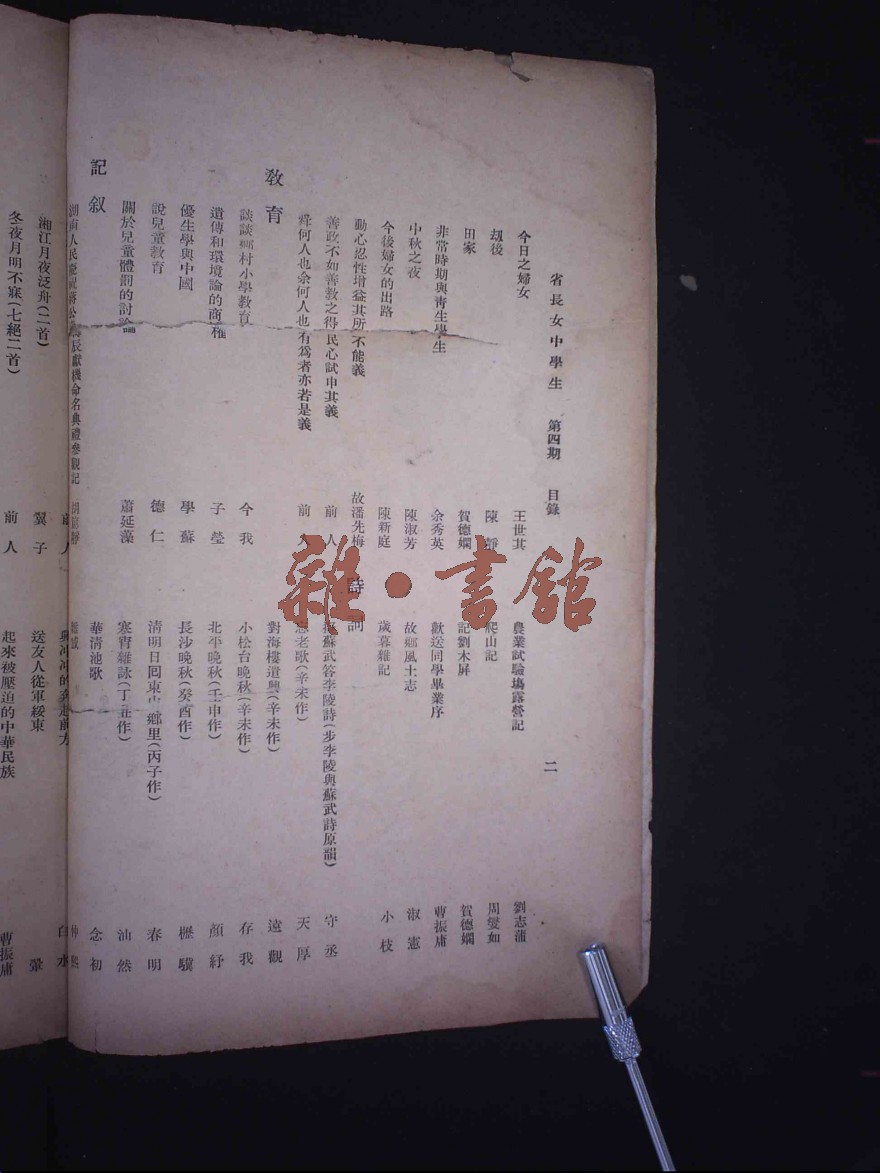 省長女中學生　第四期　目錄　二
今日之婦女　王世其
劫後　陳靜
田家　賀德嫻
非常時期與青生學生　余秀英
中秋之夜　陳淑芳
今後婦女的出路　陳新庭
動心忍性增益其所不能義　故潘先梅
善政不如善教之得民心試申其義　前人
舜何人也余何人也有爲者亦若是義　前人
教育
談談鄉村小學教育　今我
遺傳和環境論的商榷　子瑩
優生學與中國　學蘇
說兒童教育　德仁
關於兒童體罰的討論　蕭延藻
記叙
湖南人民慶祝蔣公 長獻機命名典禮參觀記
農業試驗塲露營記　劉志蒲
爬山記　周燮如
記劉木屏　賀德嫻
歡送同學畢業序　曹振庸
故鄉風土志　淑憲
歲暮雜記　小枝
詩詞
擬蘇武答李陵詩(步李陵與蘇武詩原韻)　守丞
忘老歌(辛未作)　天厚
對海樓遣興(辛未作)　遠觀
小松台晚秋(辛未作)　存我
北平晚秋(壬申作)　顏紓
長沙晚秋(癸酉作)　櫪驥
清明日回東 鄉里(丙子作)　春明
寒宵雜詠(丁丑作)　汕然
華清池歌　念初
湘江月夜泛舟(二首)　翼子
冬夜月明不寐(七絕二首)　前人
興冲冲的奔赴前方　白水
送友人從軍綏東　翬
起來被壓迫的中華民族　曹振庸
雜·書館